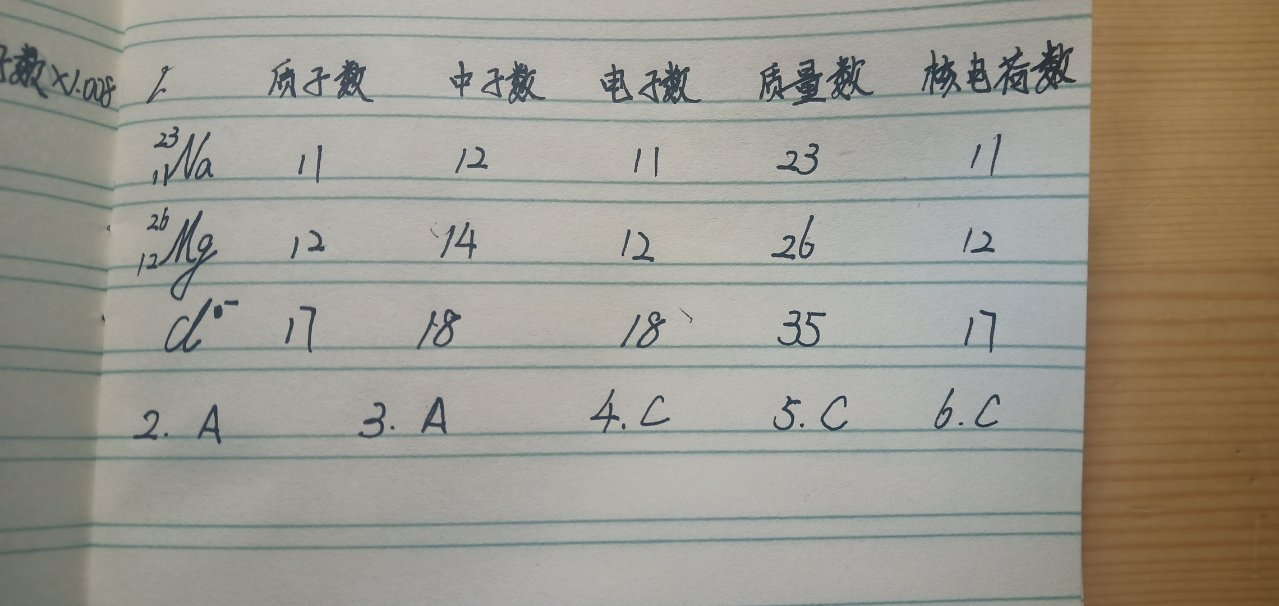 数×1.008
1. 质子数 中子数 电子数 质量数 核电荷数
²³₁₁Na 11 12 11 23 11
²⁶₁₂Mg 12 14 12 26 12
Cl⁻ 17 18 18 35 17
2. A 3. A 4. C 5. C 6. C